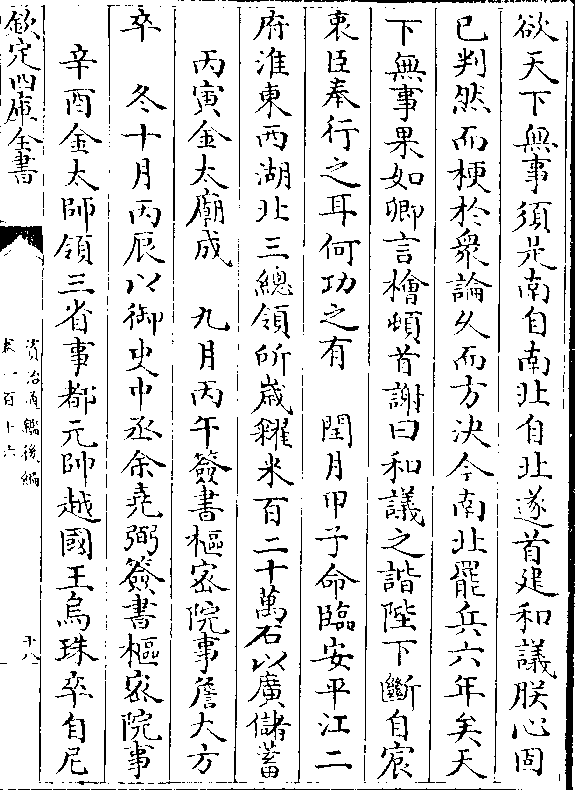 欲天下無事須是南自南北自北遂首建和議朕心固
已判然而梗於衆論久而方決今南北罷兵六年矣天
下無事果如卿言檜頓首謝曰和議之諧陛下斷自宸
衷臣奉行之耳何功之有　閏月甲子命臨安平江二
府淮東西湖北三總領所歲糴米百二十萬石以廣儲蓄
丙寅金太廟成　九月丙午簽書樞密院事詹大方
卒　冬十月丙辰以御史中丞余堯弼簽書樞密院事
辛酉金太師領三省事都元帥越國王烏珠卒自尼
欽定四庫全書
資治通鑑後編
卷一百十六
十八